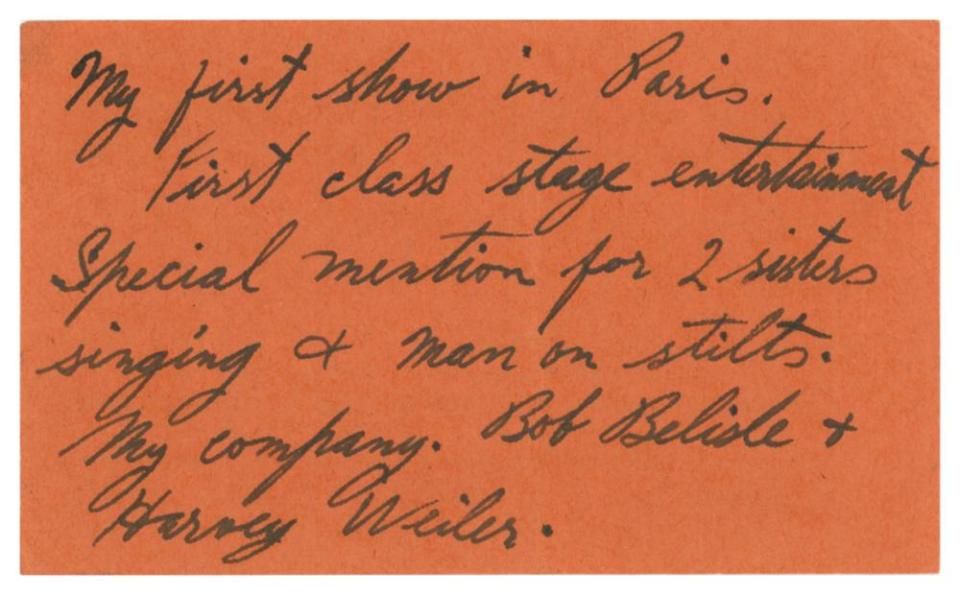 My first show in Paris.
First class stage entertainment
Special mention for 2 sisters
singing & man on stilts.
My company. Bob Belisle &
Harvey Weiler.